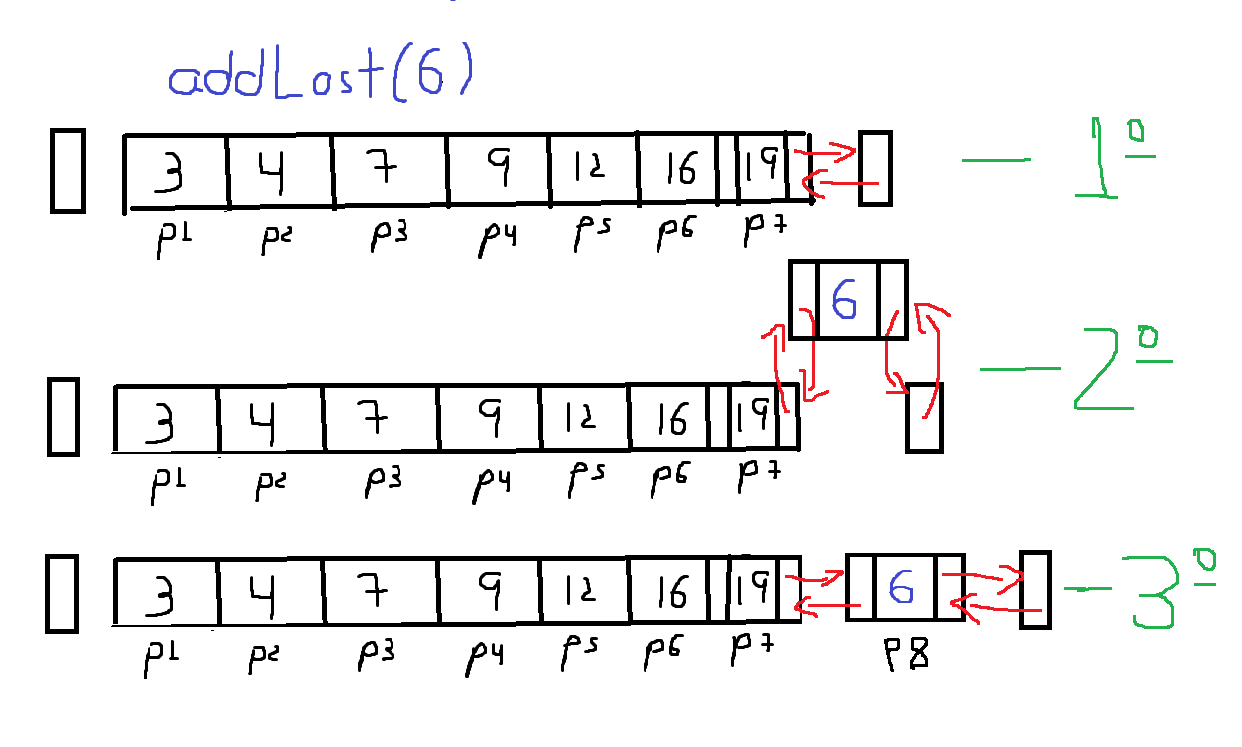 addLast(6)
3 4 7 9 12 16 19 — 1º
p1 p2 p3 p4 p5 p6 p7
6
3 4 7 9 12 16 19 — 2º
p1 p2 p3 p4 p5 p6 p7
3 4 7 9 12 16 19 6 — 3º
p1 p2 p3 p4 p5 p6 p7 p8